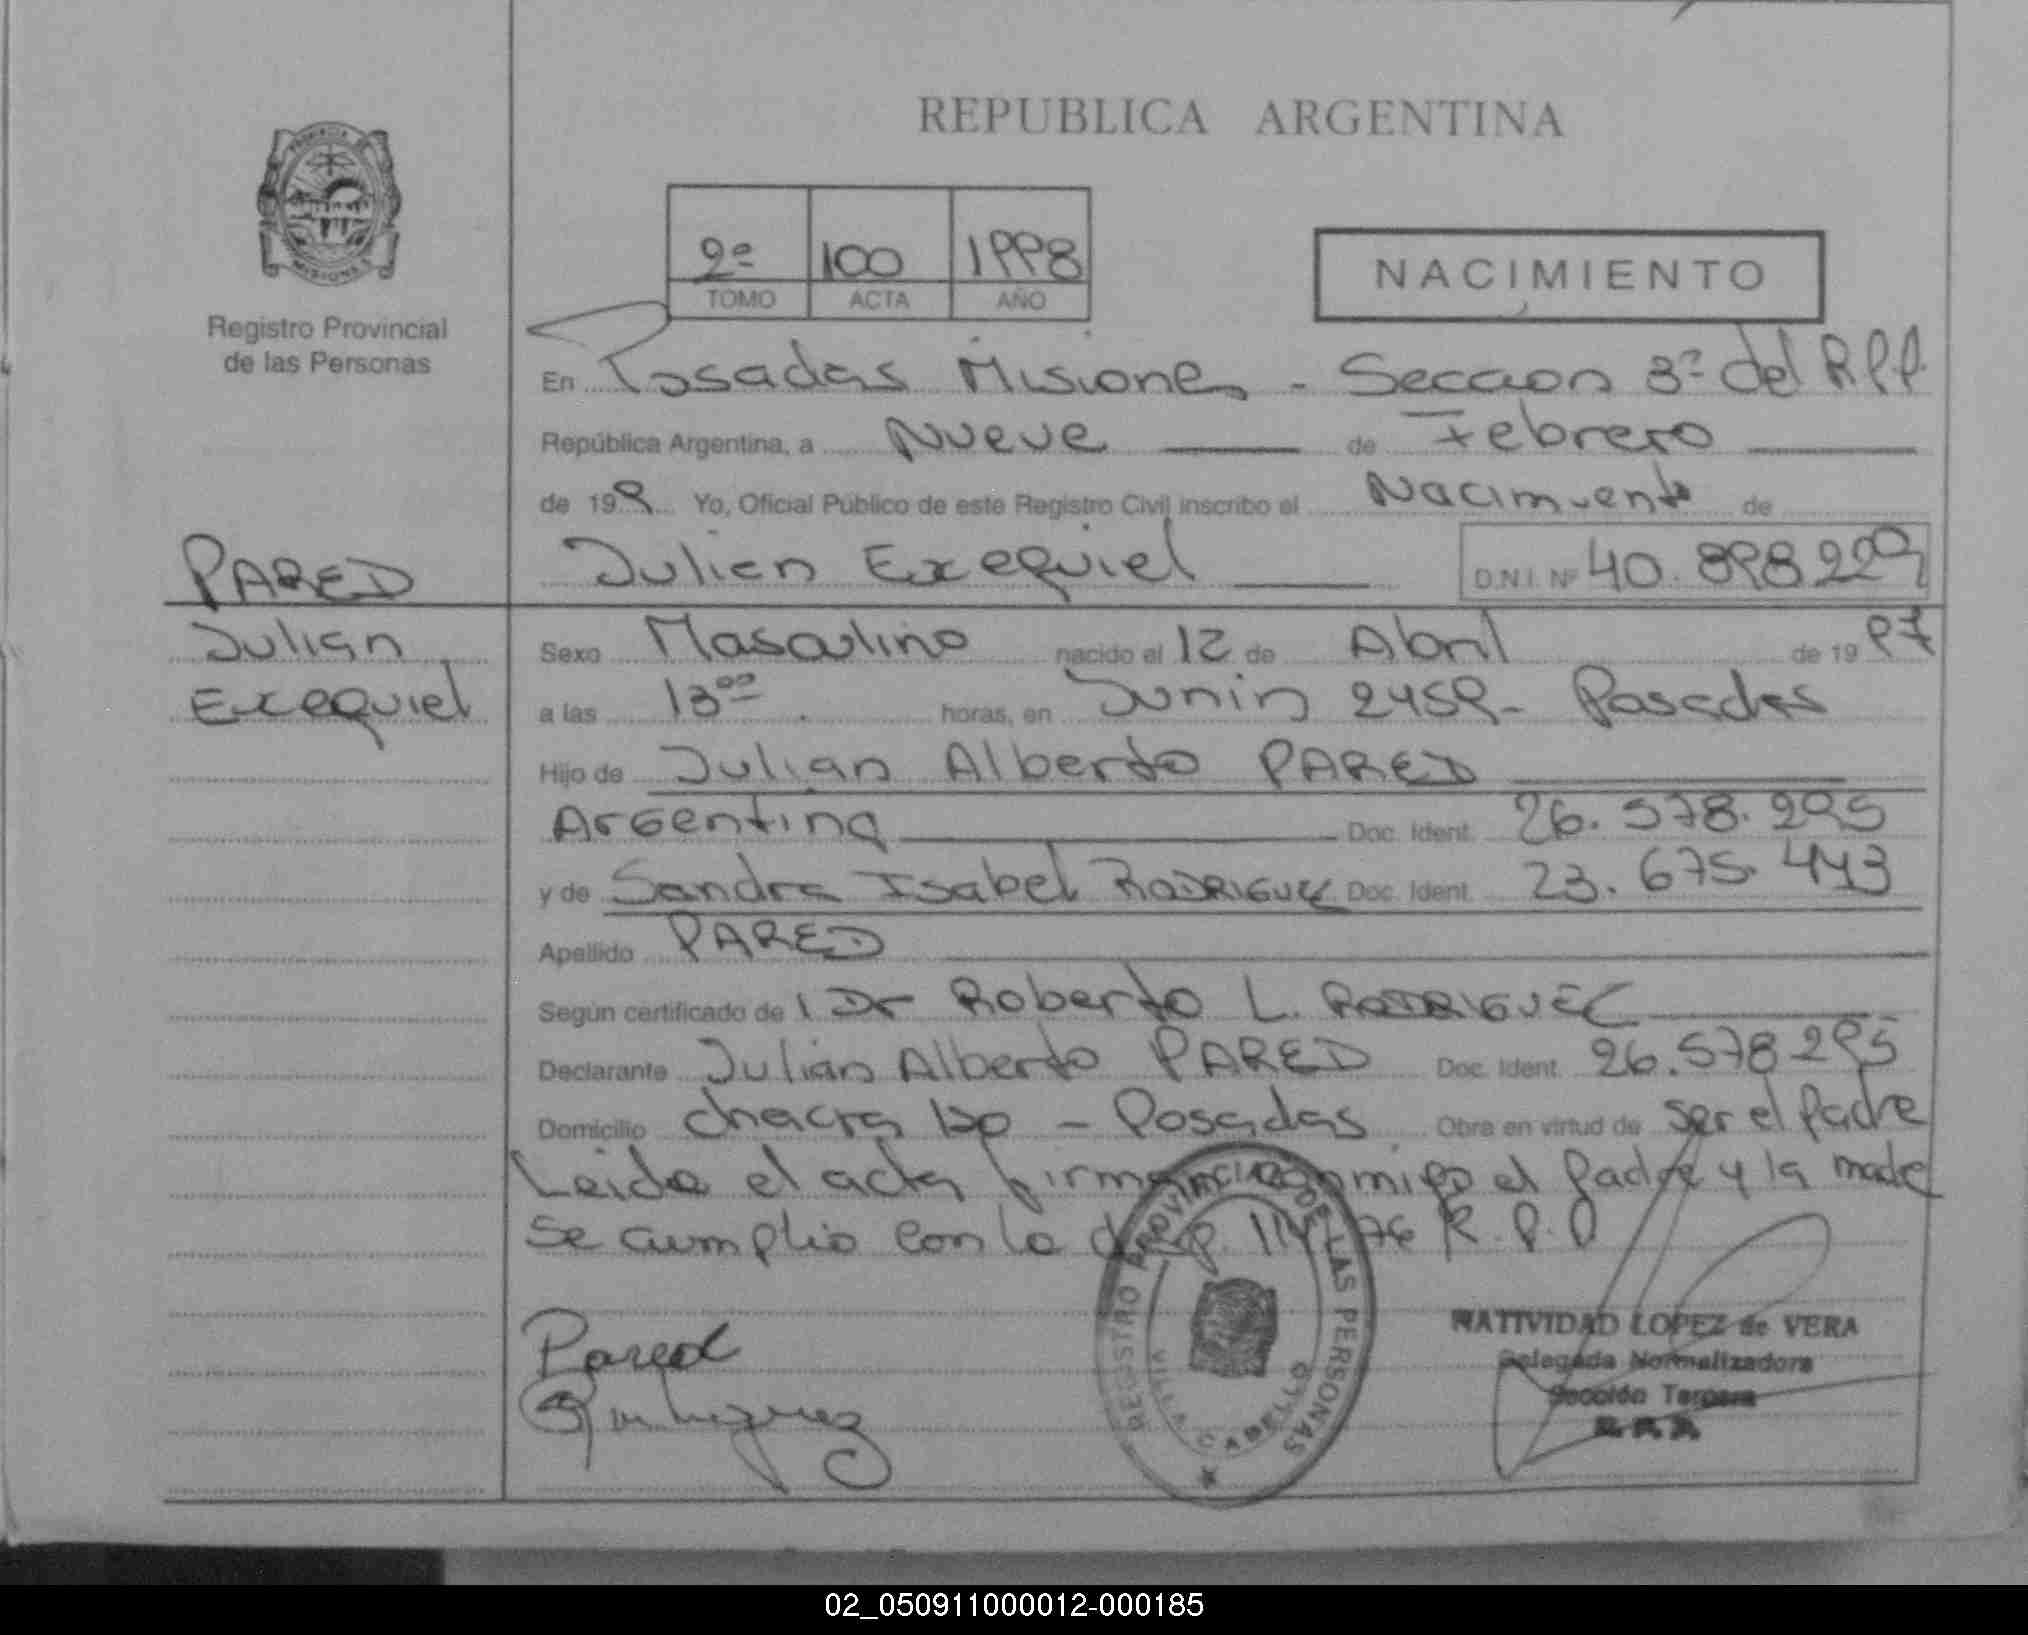 REPUBLICA ARGENTINA
PROVINCIA DE
MISIONES
Registro Provincial
de las Personas
2º 100 1998
TOMO ACTA AÑO
NACIMIENTO
En Posadas Misiones - Seccion 3ª del R.P.P.
República Argentina, a Nueve de Febrero
de 199 Yo, Oficial Público de este Registro Civil inscribo el Nacimiento de
PARED
Julian Exequiel D.N.I. Nº 40.898229
Julian
Exequiel
Sexo Masculino nacido el 12 de Abril de 19 97
a las 13⁰⁰ horas, en Junin 2459- Posadas
Hijo de Julian Alberto PARED
Argentina Doc. Ident. 26.578.295
y de Sandra Isabel RODRIGUEZ Doc. Ident. 23.675.443
Apellido PARED
Según certificado de l Dr Roberto L. RODRIGUEZ
Declarante Julian Alberto PARED Doc. Ident. 26.578295
Domicilio chacra 120 - Posadas Obra en virtud de ser el padre
Leida el acta firman conmigo el padre y la madre
Se cumplio con la disp. 114/76 R.P.P
Pared
REGISTRO PROVINCIAL DE LAS PERSONAS
VILLA CABELLO
NATIVIDAD LOPEZ de VERA
Delegada Normalizadora
Sección Tercera
R.P.P.
02_050911000012-000185